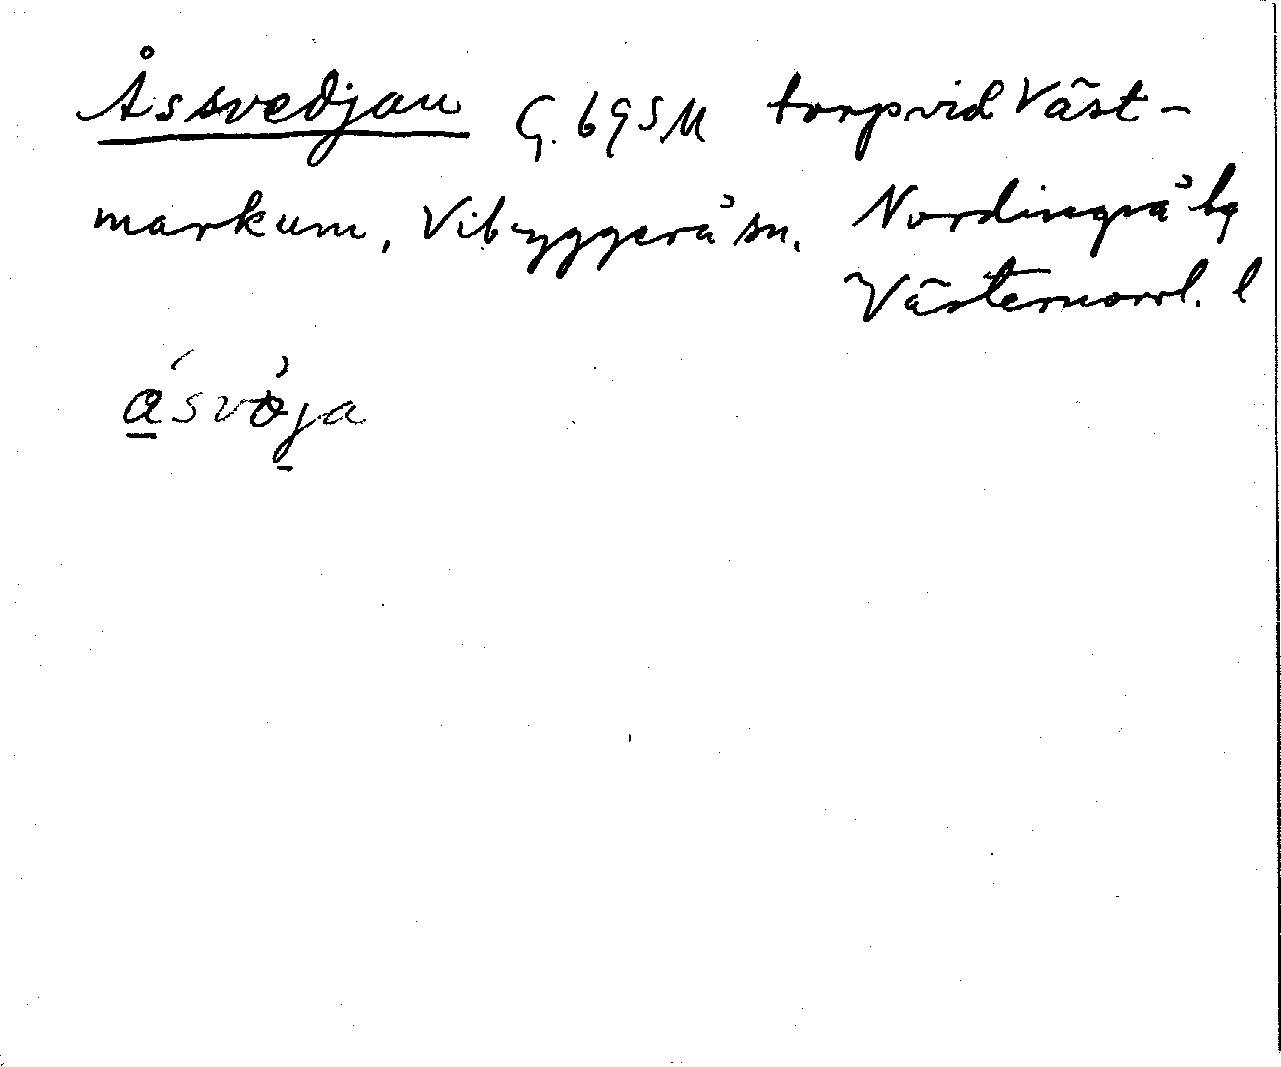 Åssvedjan G. 695M torp vid Väst-
markum, Vibyggerå sn. Nordingrå tg
Västernorrl. l